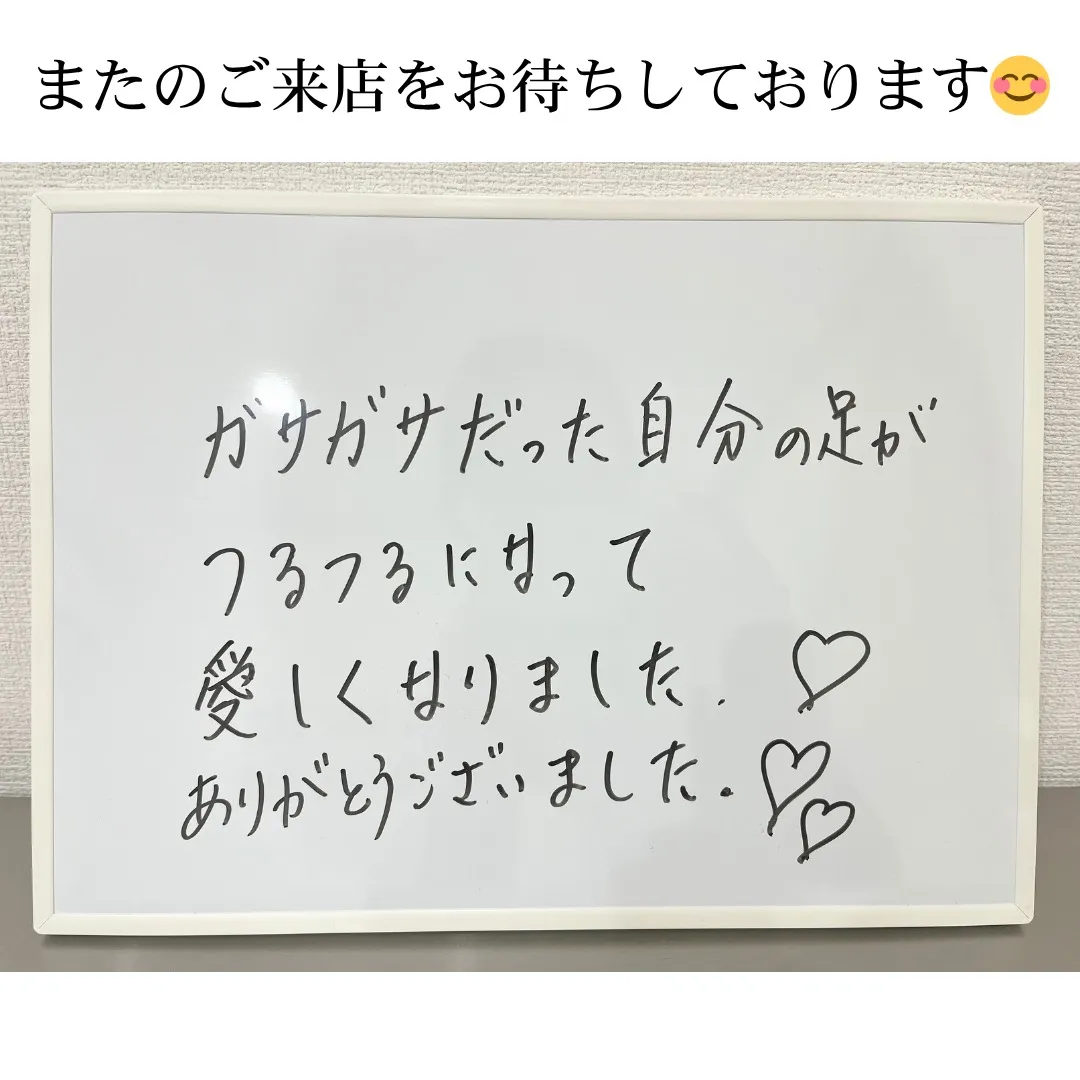 またのご来店をお待ちしております😊
ガサガサだった自分の足が
つるつるになって
愛しくなりました.
ありがとうございました.